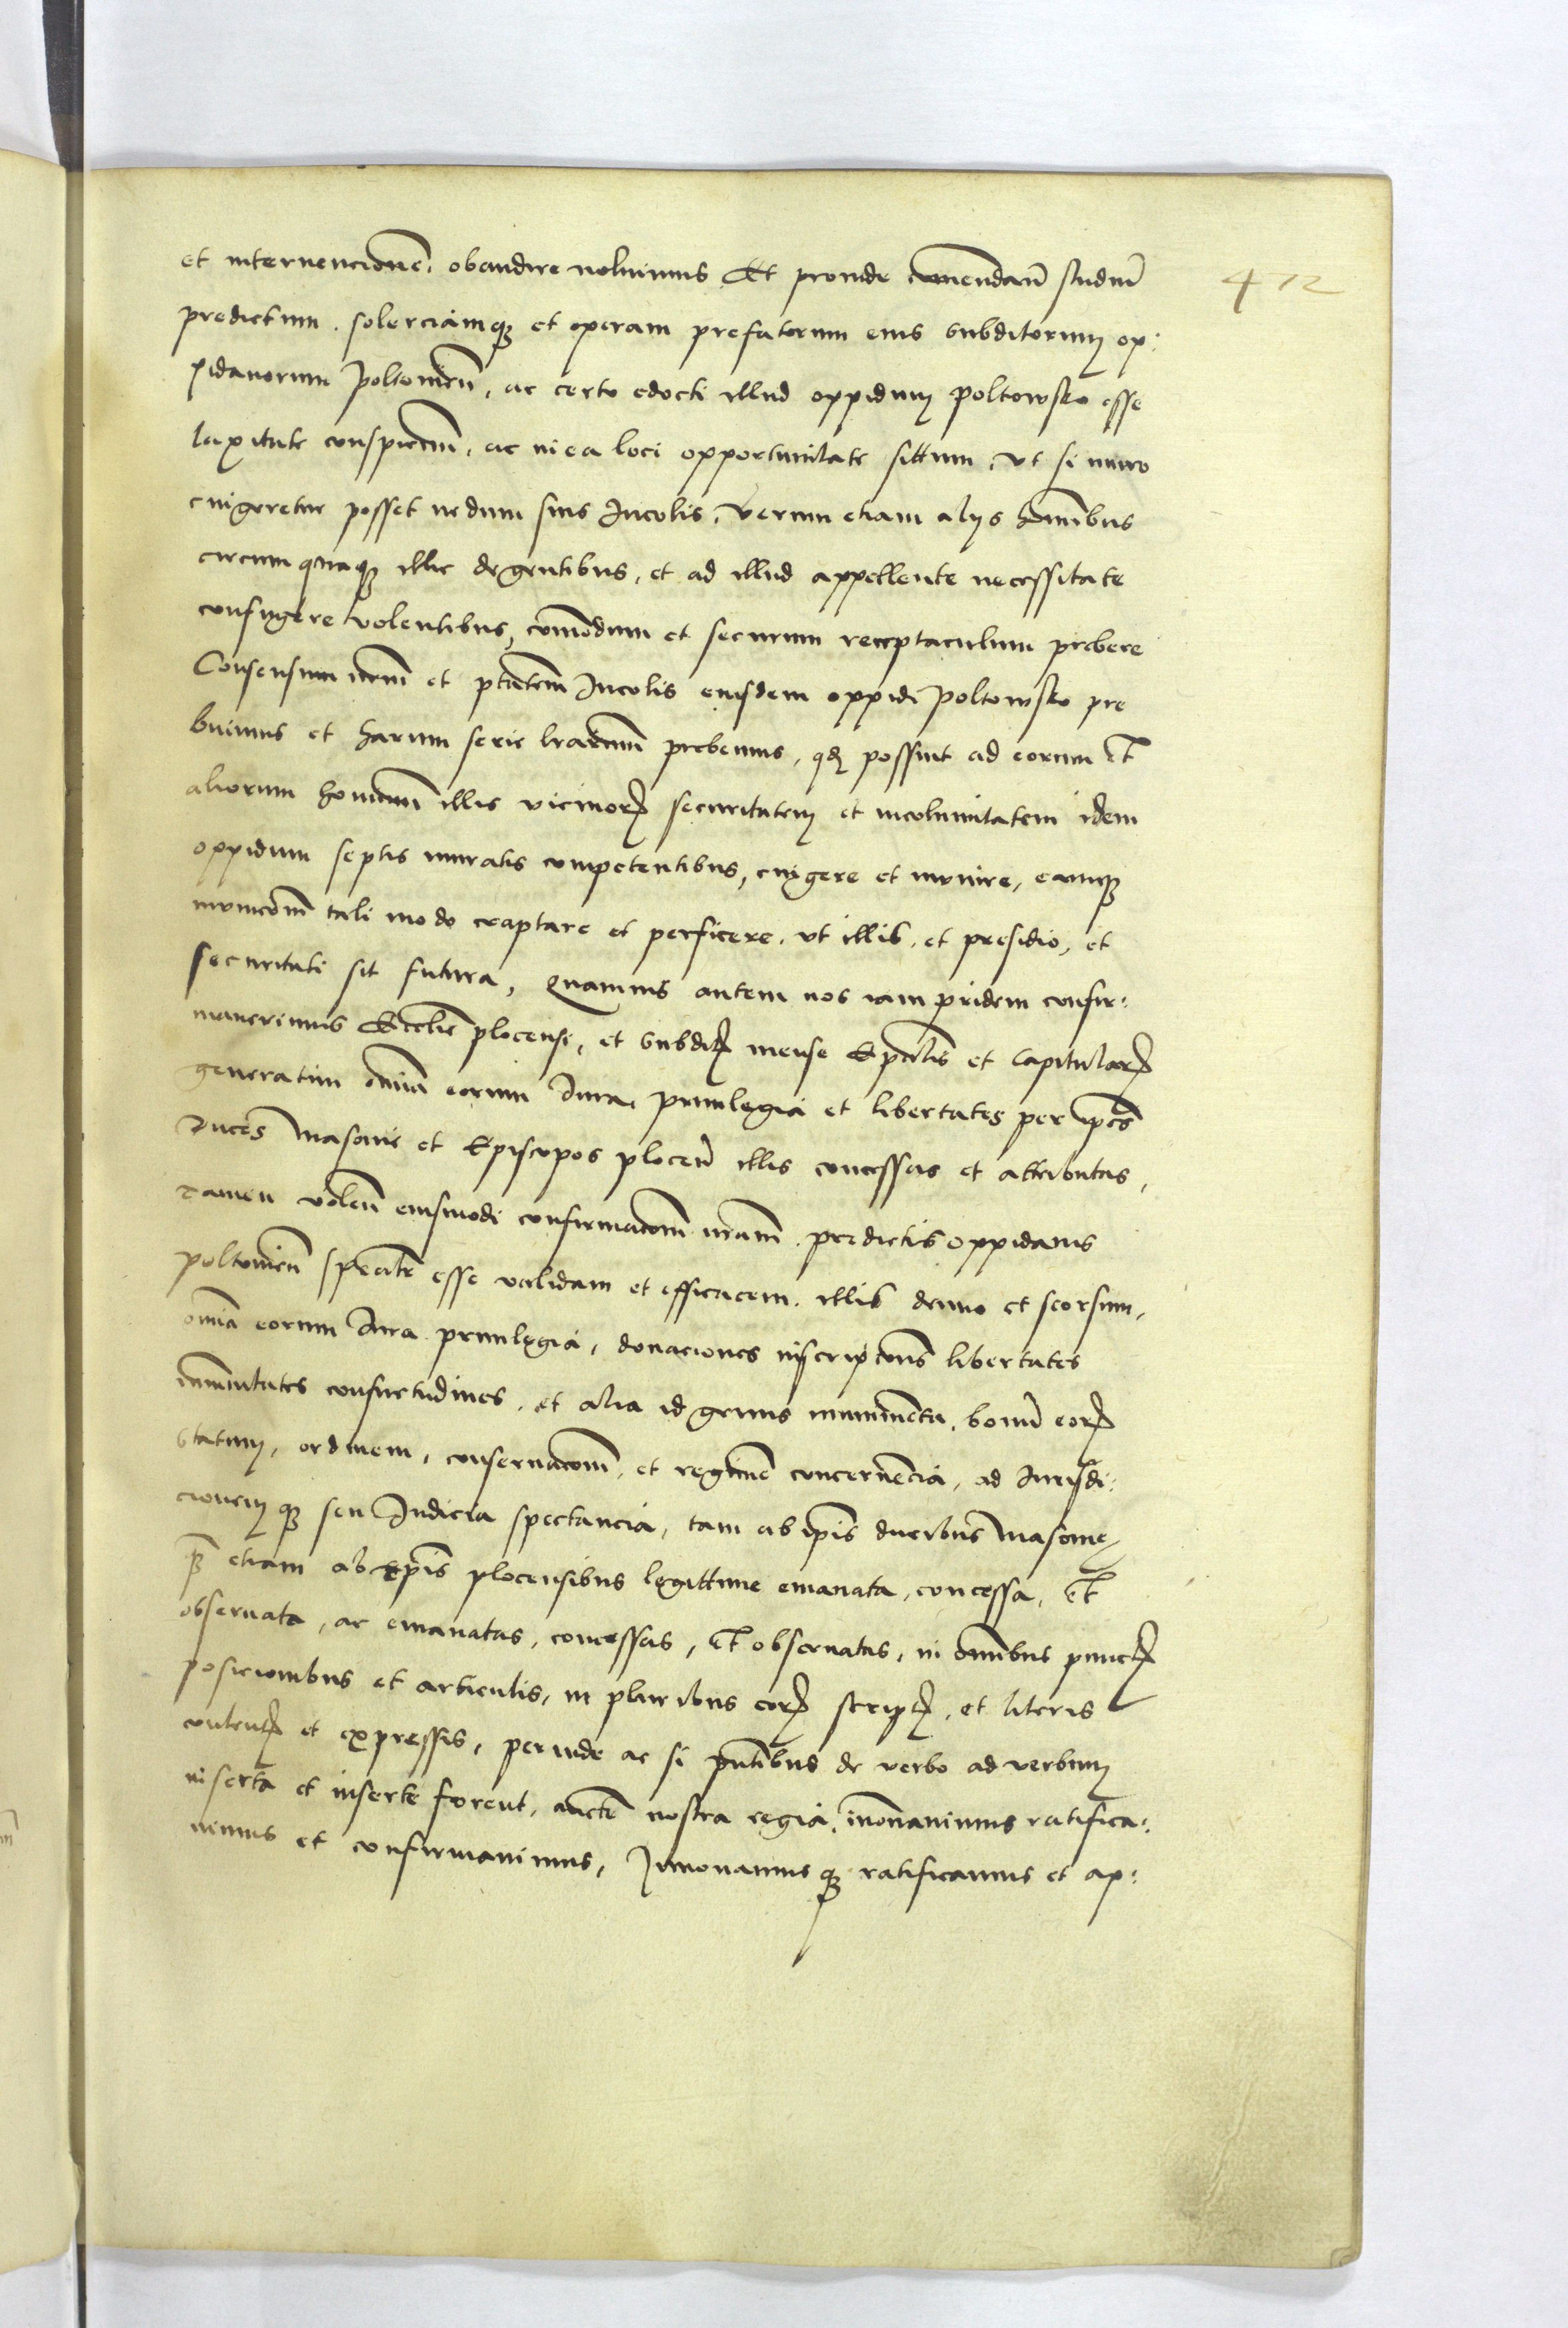 et intervencione, obaudire voluimus Et proinde comendan̄ studiū
472
predictum. solerciamqȝ et operam prefatorum eius subditorum op:
pidanorum Poltovien̄, ac certo edocti illud oppidum Poltowsko esse
laxitate conspicuū, ac in ea loci opportunitate sittum, Vt si muro
cingeretur posset nedum suis Incolis, Verum etiam alijs hōinibus
circumquaqȝ illic degentibus, et ad illud appellente necessitate
confugere volentibus, comodum et securum receptaculum prebere
Consensum nrm̄ et ptatem̄ Incolis eiusdem oppidi Poltowsko pre
buimus et harum serie lrarum̄ prebemus, qđ possint ad eorum Et
aliorum hominum̄ illis vicinorꝝ securitatem et incolumitatem idem
oppidum septis muratis competentibus, cingere et munire, eamqȝ
municom̄ tali modo coaptare et perficere, vt illis, et presidio, et
securitati sit futura, Quamuis autem nos iam pridem confir:
mauerimus Ecclie plocensi, et subditꝭ mense Epalis et Capitularꝭ
generatim omia eorum Iura, priuilegia et libertates per ipos
Duces Masouie et Episcopos plocen̄ illis concessas et attributas,
Tamen volen̄ eiusmodi confirmacom̄ nram̄. predictis oppidanis
Poltovien̄ spealr esse validam et efficacem. illis denuo et seorsum,
omia eorum Iura priuilegia, donaciones inscripcions libertates
immūitates consuetudines, et alia id genus munimenta, bonū eorꝝ
statum, ordinem, conseruacom̄, et regimē concernēcia, ad Iurisdi:
cionem qȝ seu Iudicia spectancia, tam ab ipis ducibus Masouie
qȝ etiam ab Epis plocensibus legittime emanata, concessa, Et
obseruata, ac emanatas, concessas, Et obseruatas, in omibus punctꝭ
posicionibus et articulis, in pluribus eorꝝ scriptꝭ, et literis
contentꝭ et expressis, perinde ac si pntibus de verbo ad verbum
inserta et inserte forent, aucte nostra regia, innouauimus ratifica:
uimus et confirmauimus, Innouamus qȝ ratificamus et ap: